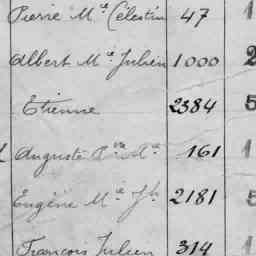 Pierre M.ie Célestin 47 1
Albert M.ie Julien 1000 2
Etienne 2384 5
Auguste M.ie 161 1
Eugène M.ie Jh 2181 5
François Julien 314 1